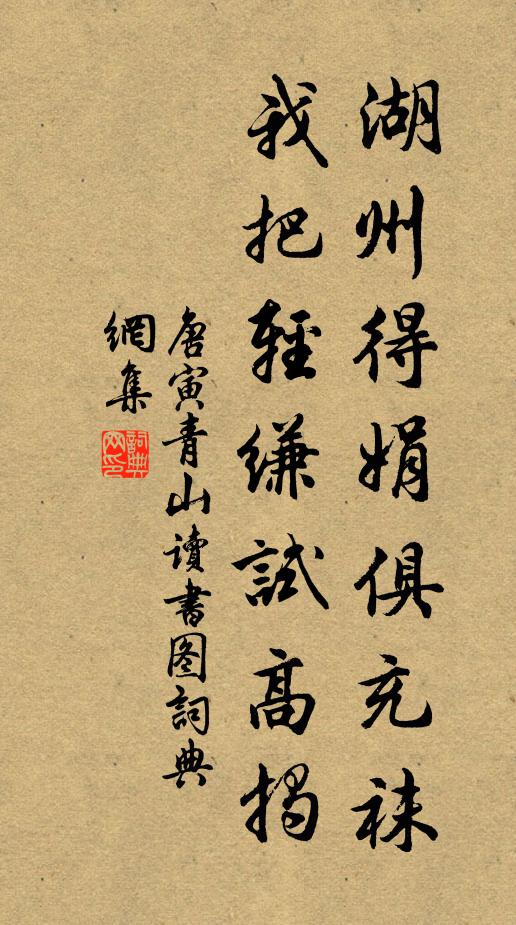 湖州得娟俱充袜
我把輕縑試高揭
唐寅青山讀書图詞典
網集
詞典
网印